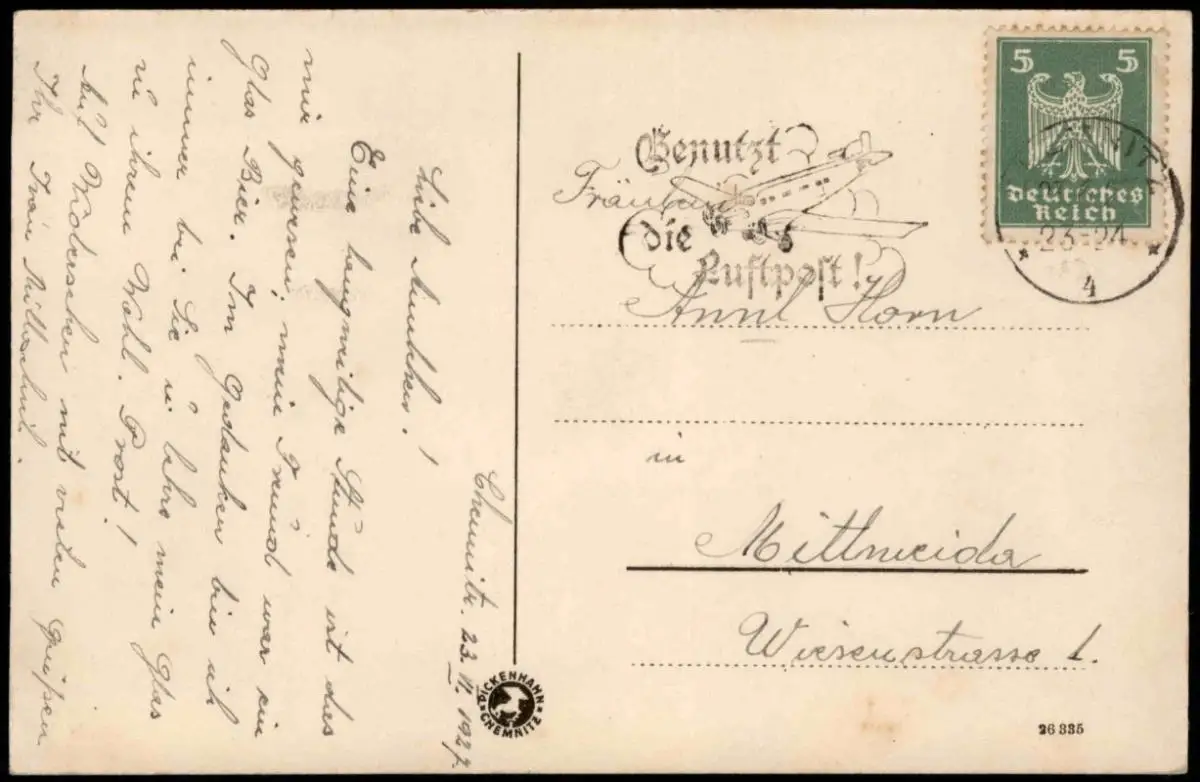 Chemnitz. 23.11.1927.
Liebe Annchen!
Eine langweilige Stunde ist dies
mir gewesen, meine Freund war ein
Glas Bier. Im Gedanken bin ich
immer bei Sie u. lehre mein Glas
zu ihrem Wohl. Prost!
Auf Wiedersehen mit vielen Grüßen
Ihr
5 5
Deutsches
Reich
23-24
4
Benutzt
die
Luftpost!
Fräulein
Annl Horn
in
Mittweida
Wiesenstrasse 1.
PICKENHAHN
CHEMNITZ
26 335